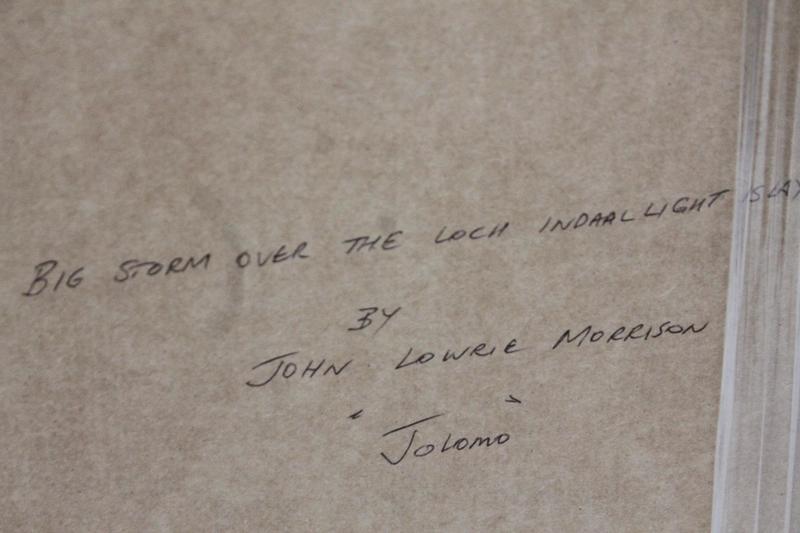 BIG STORM OVER THE LOCH INDAAL LIGHT ISLAY
BY
JOHN LOWRIE MORRISON
"JOLOMO"